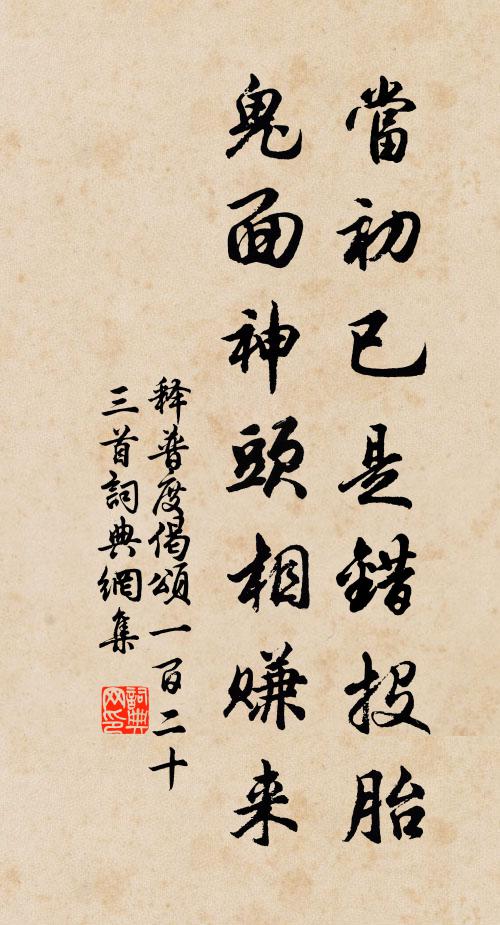 當初已是錯投胎
鬼面神頭相賺来
释普度偈頌一百二十
三首詞典網集
詞典
网印